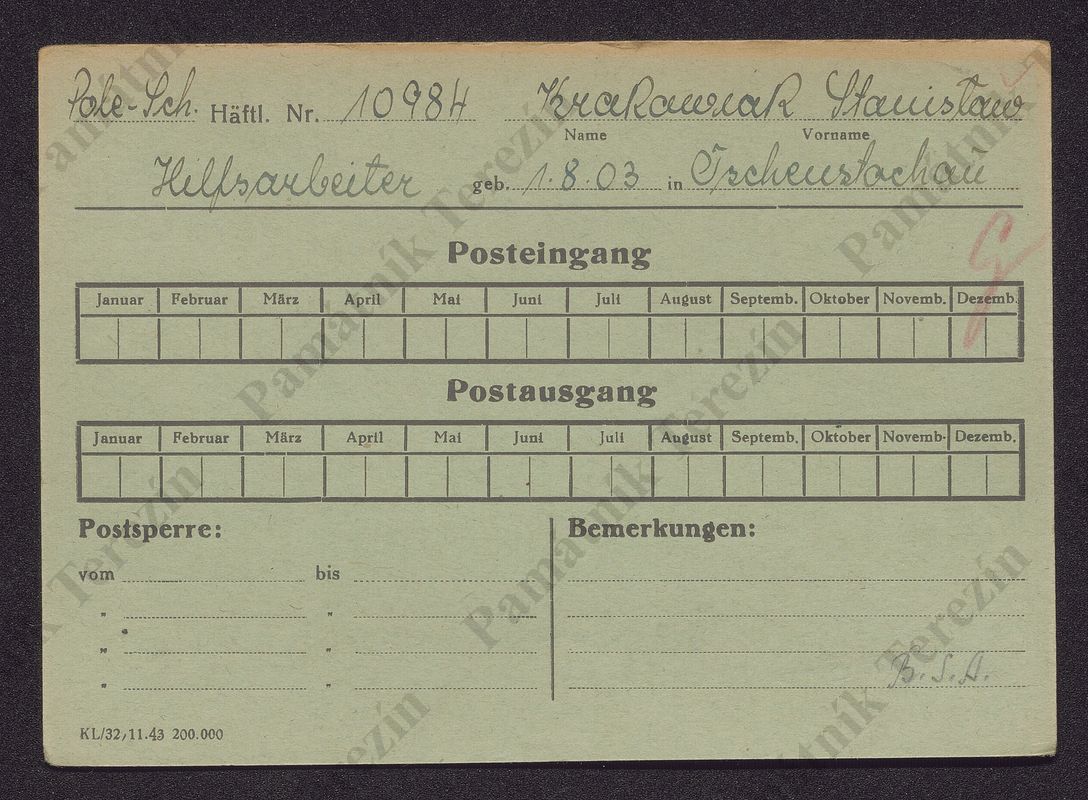 Pole-Sch. Häftl. Nr. 10984 Krakowiak Stanisław
Name Vorname
Hilfsarbeiter geb. 1.8.03 in Tschenstochau
Posteingang
Januar Februar März April Mai Juni Juli August Septemb. Oktober Novemb. Dezemb.
Postausgang
Januar Februar März April Mai Juni Juli August Septemb. Oktober Novemb. Dezemb.
Postsperre: Bemerkungen:
vom bis
" "
" "
" "
B.S.A.
KL/32/11.43 200.000
Památník Terezín